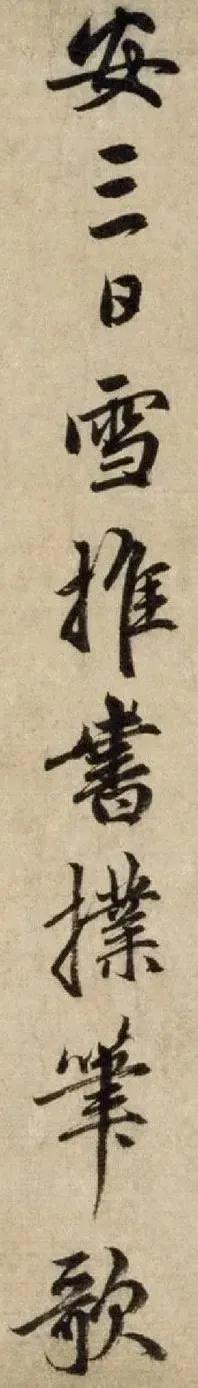 安三日雪推書撲筆歌